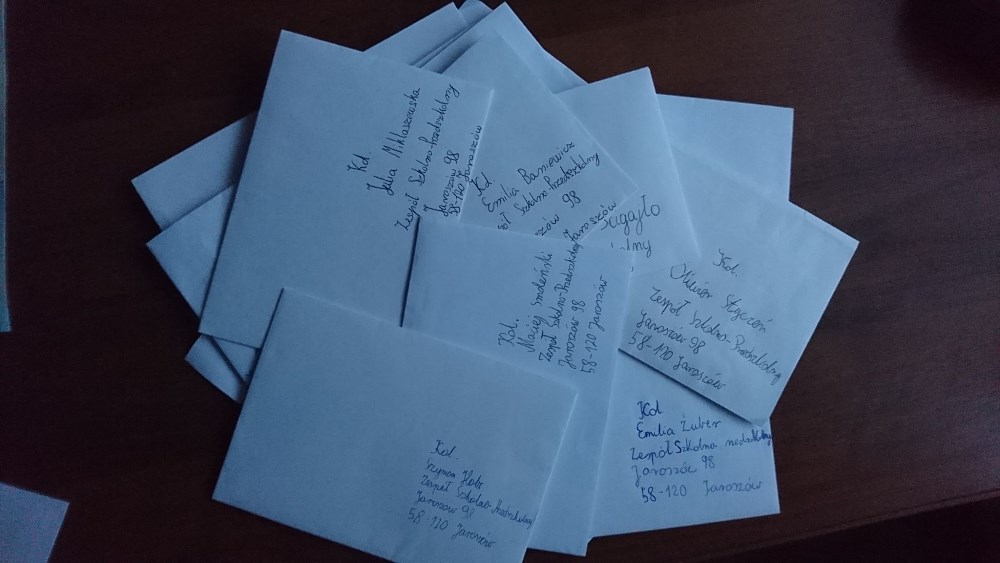 Kol.
Julia Miklaszewska
Zespół Szkolno-Przedszkolny
Jaroszów 98
58-120 Jaroszów
Kol
Emilia Baniewicz
Szkolno-Przedszkolny
98
Jaroszów
Kol.
Maciej Smoleński
Zespół Szkolno-Przedszkolny
Jaroszów 98
58-120 Jaroszów
Kol.
Styczeń
Zespół Szkolno-Przedszkolny
Jaroszów 98
58-120 Jaroszów
Kol
Emilia Żuber
Zespół Szkolno
Jaroszów 98
58-120 Jaroszów
Kol.
Szymon
Zespół Szkolno-Przedszkolny
Jaroszów 98
58-120 Jaroszów